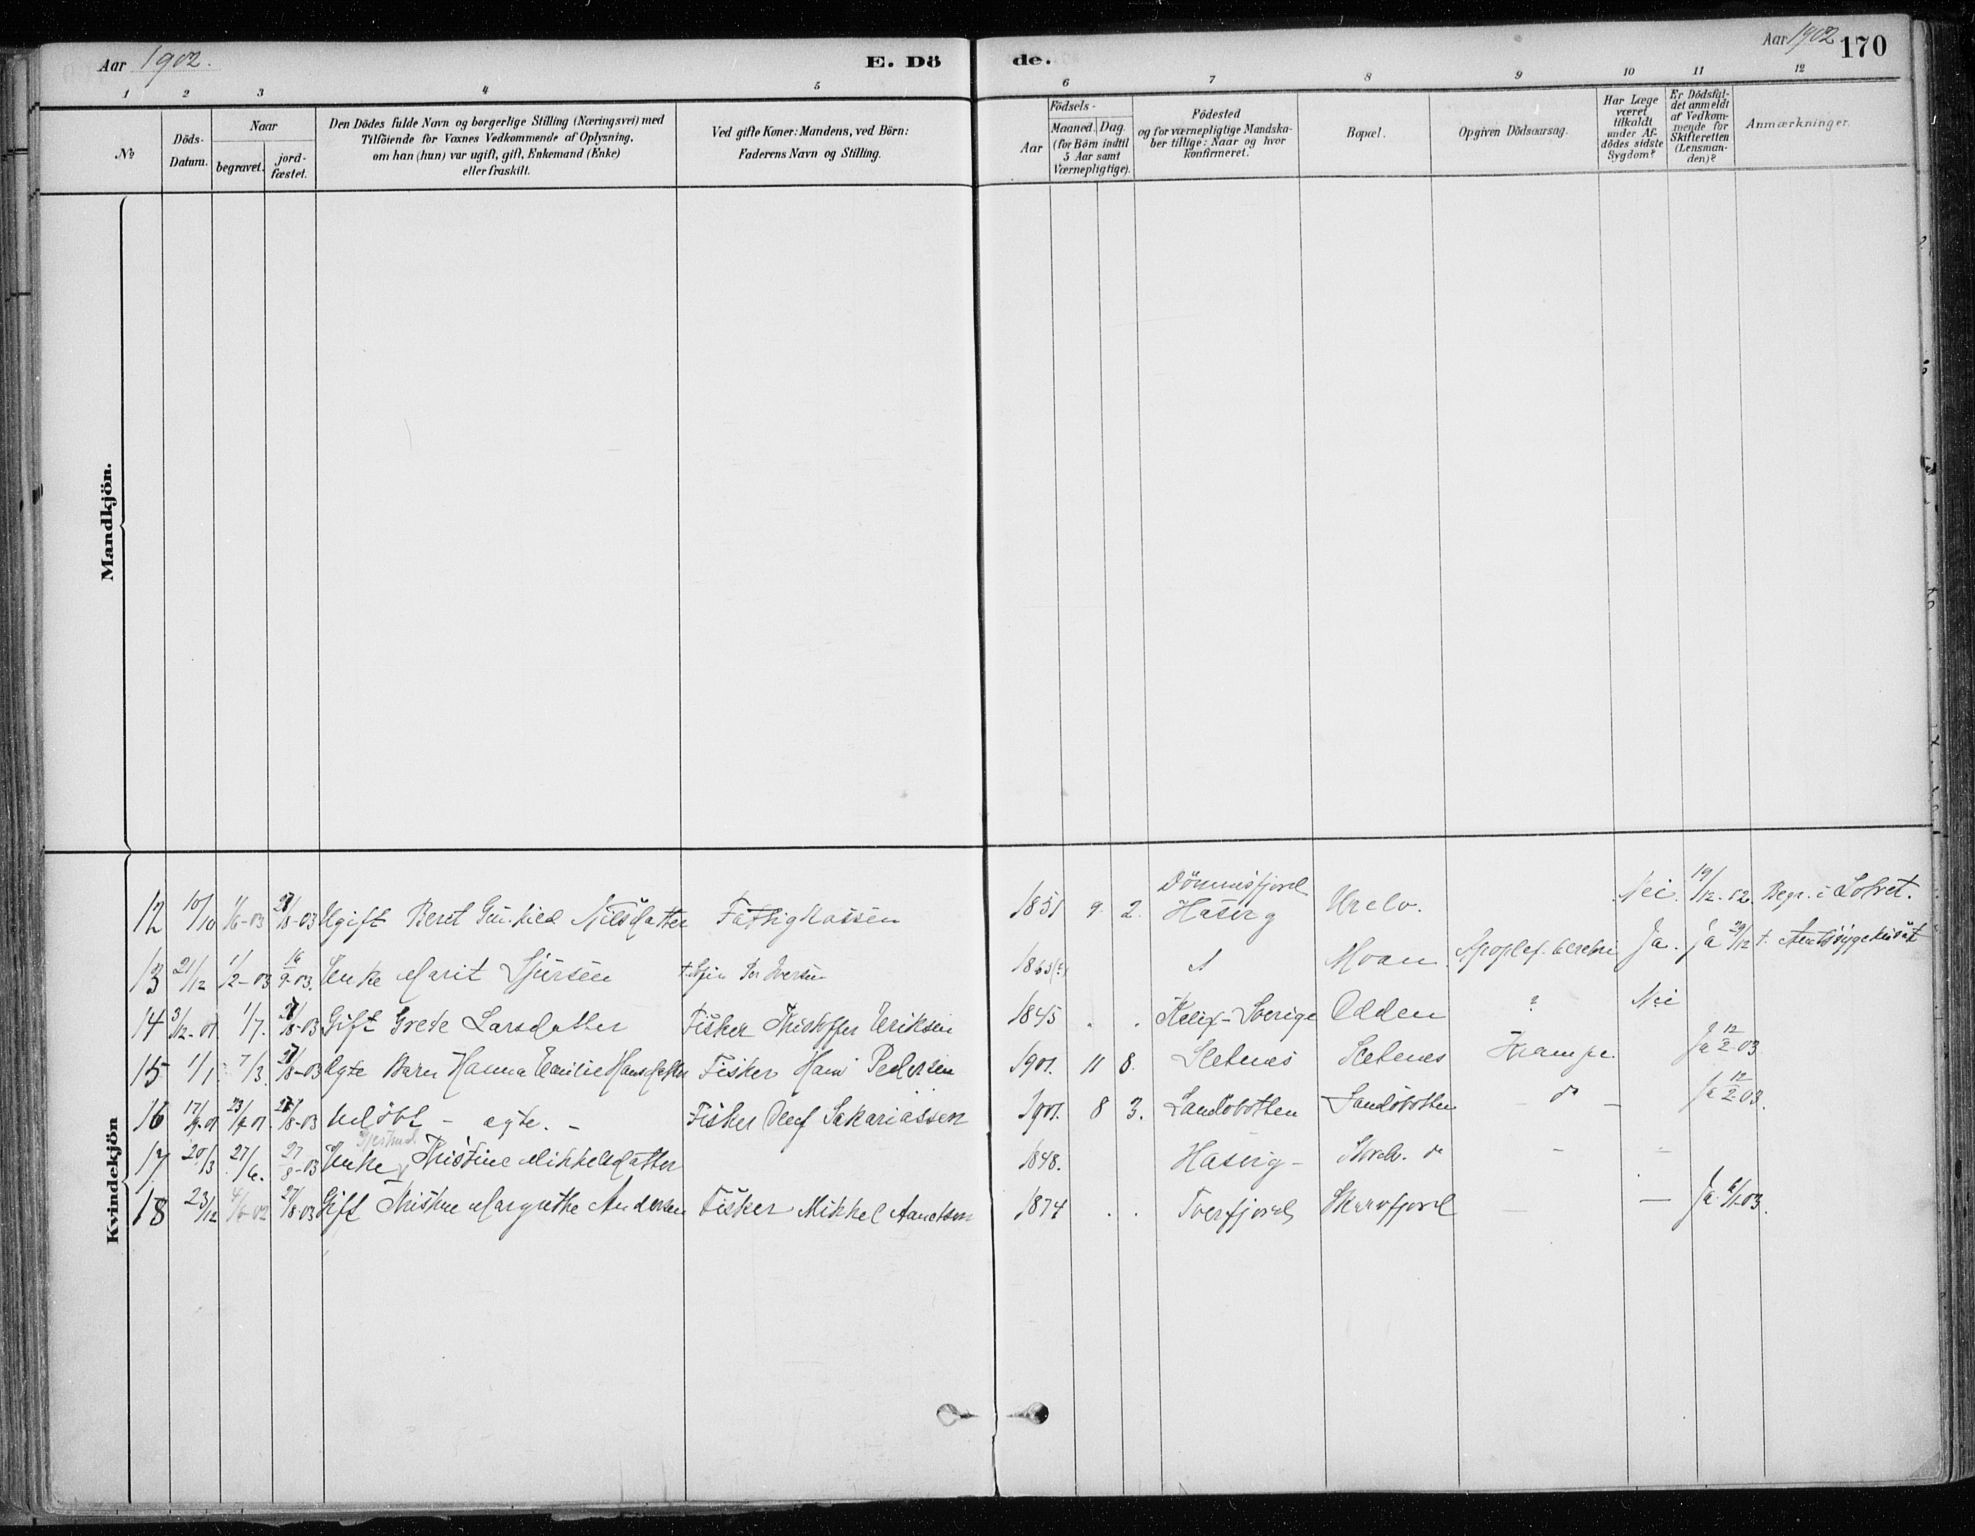 Aar 1902.
E. Dö
de.
Aar 1902
170
1 2 3 4 5 6 7 8 9 10 11 12
№
Döds-
Datum.
Naar
begravet.
jord-
fæstet.
Den Dödes fulde Navn og borgerlige Stilling (Næringsvei) med
Tilföiende for Voxnes Vedkommende af Oplysning,
om han (hun) var ugift, gift, Enkemand (Enke)
eller fraskilt.
Ved gifte Koner: Mandens, ved Börn:
Faderens Navn og Stilling.
Födsels-
Aar
Maaned. Dag.
(for Börn indtil
5 Aar samt
Værnepligtige).
Födested
og for værnepligtige Mandska-
ber tillige: Naar og hvor
konfirmeret.
Bopæl.
Opgiven Dödsaarsag.
Har Læge
været
tilkaldt
under Af-
dödes sidste
Sygdom?
Er Dödsfal-
det anmeldt
af Vedkom-
mende for
Skifteretten
(Lensman-
den)?
Anmærkninger.
Mandkjön.
Kvindekjön
Dönnesfjord
12 10/10 1/6-03 27/8-03 Ugift Beret Gunhild Nilsdatter Fattigkassen 1851 9. 2. Hasvig Nei 19/12-02 Begr. i
13 21/12 1/2-03 Enke Marit Sjursen Per Iversen Moan Apoplex. cerebri Ja. Ja 29/12 † Amtssygehuset
14 3/12-01. 1/7. 27/8-03 Gift Grete Larsdatter Fisker Kristoffer Eriksen 1845 . . Kalix-Sverige Odden ? Nei
15 1/1. 7/3. 27/8-03 Ægte Barn Hanna Emilie Hansdatter Fisker Hans Pedersen 1901. 11 8. Sletnes Sletnes Krampe Ja 12/2-03
16 23/9-01. 27/8-03 Udöbt - ægte. - Fisker Oluf Sakariassen 1901. 8 3. Sandöbotten Sandöbotten - do - Ja 12/2-03.
17. 20/3 27/6. 27/8-03 Enke Kristine Mikkelsdatter 1848. Hasvig - - -
18 23/12 27/8-03 Gift Kristine Margrethe Andersen Fisker Mikkel 1874 . . Tverfjord Skarvfjord - - Ja 6/1-03.